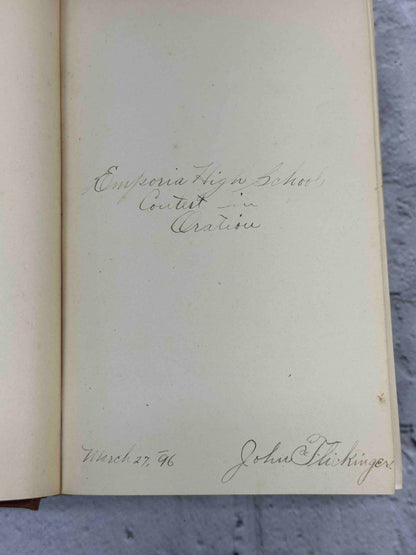 Emporia High School
Contest in
Oration
March 27, '96
John Flickinger